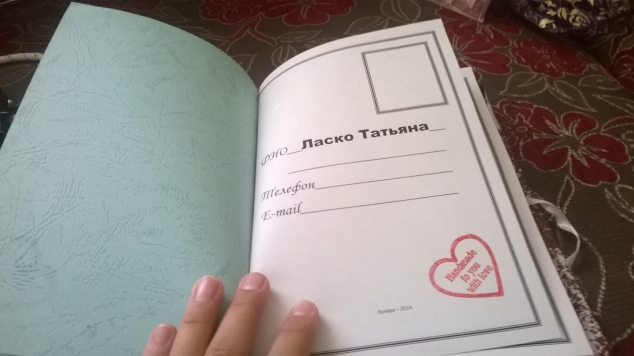 ФИО__Ласко Татьяна__
Телефон____________________
E-mail____________________
Handmade
fo you
with love